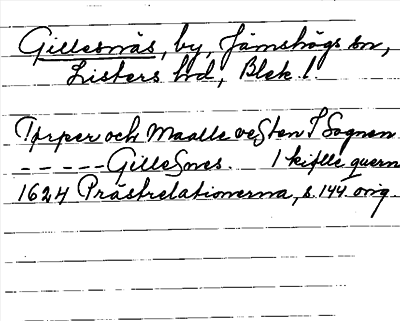 Gillesnäs, by, Jämshögs sn,
Listers hd, Blek. l.
Torper och Maalle veSten I Sognen
- - - - - GilleSnes. 1 kiølle quern
1624 Prästrelationerna, s. 144 orig.